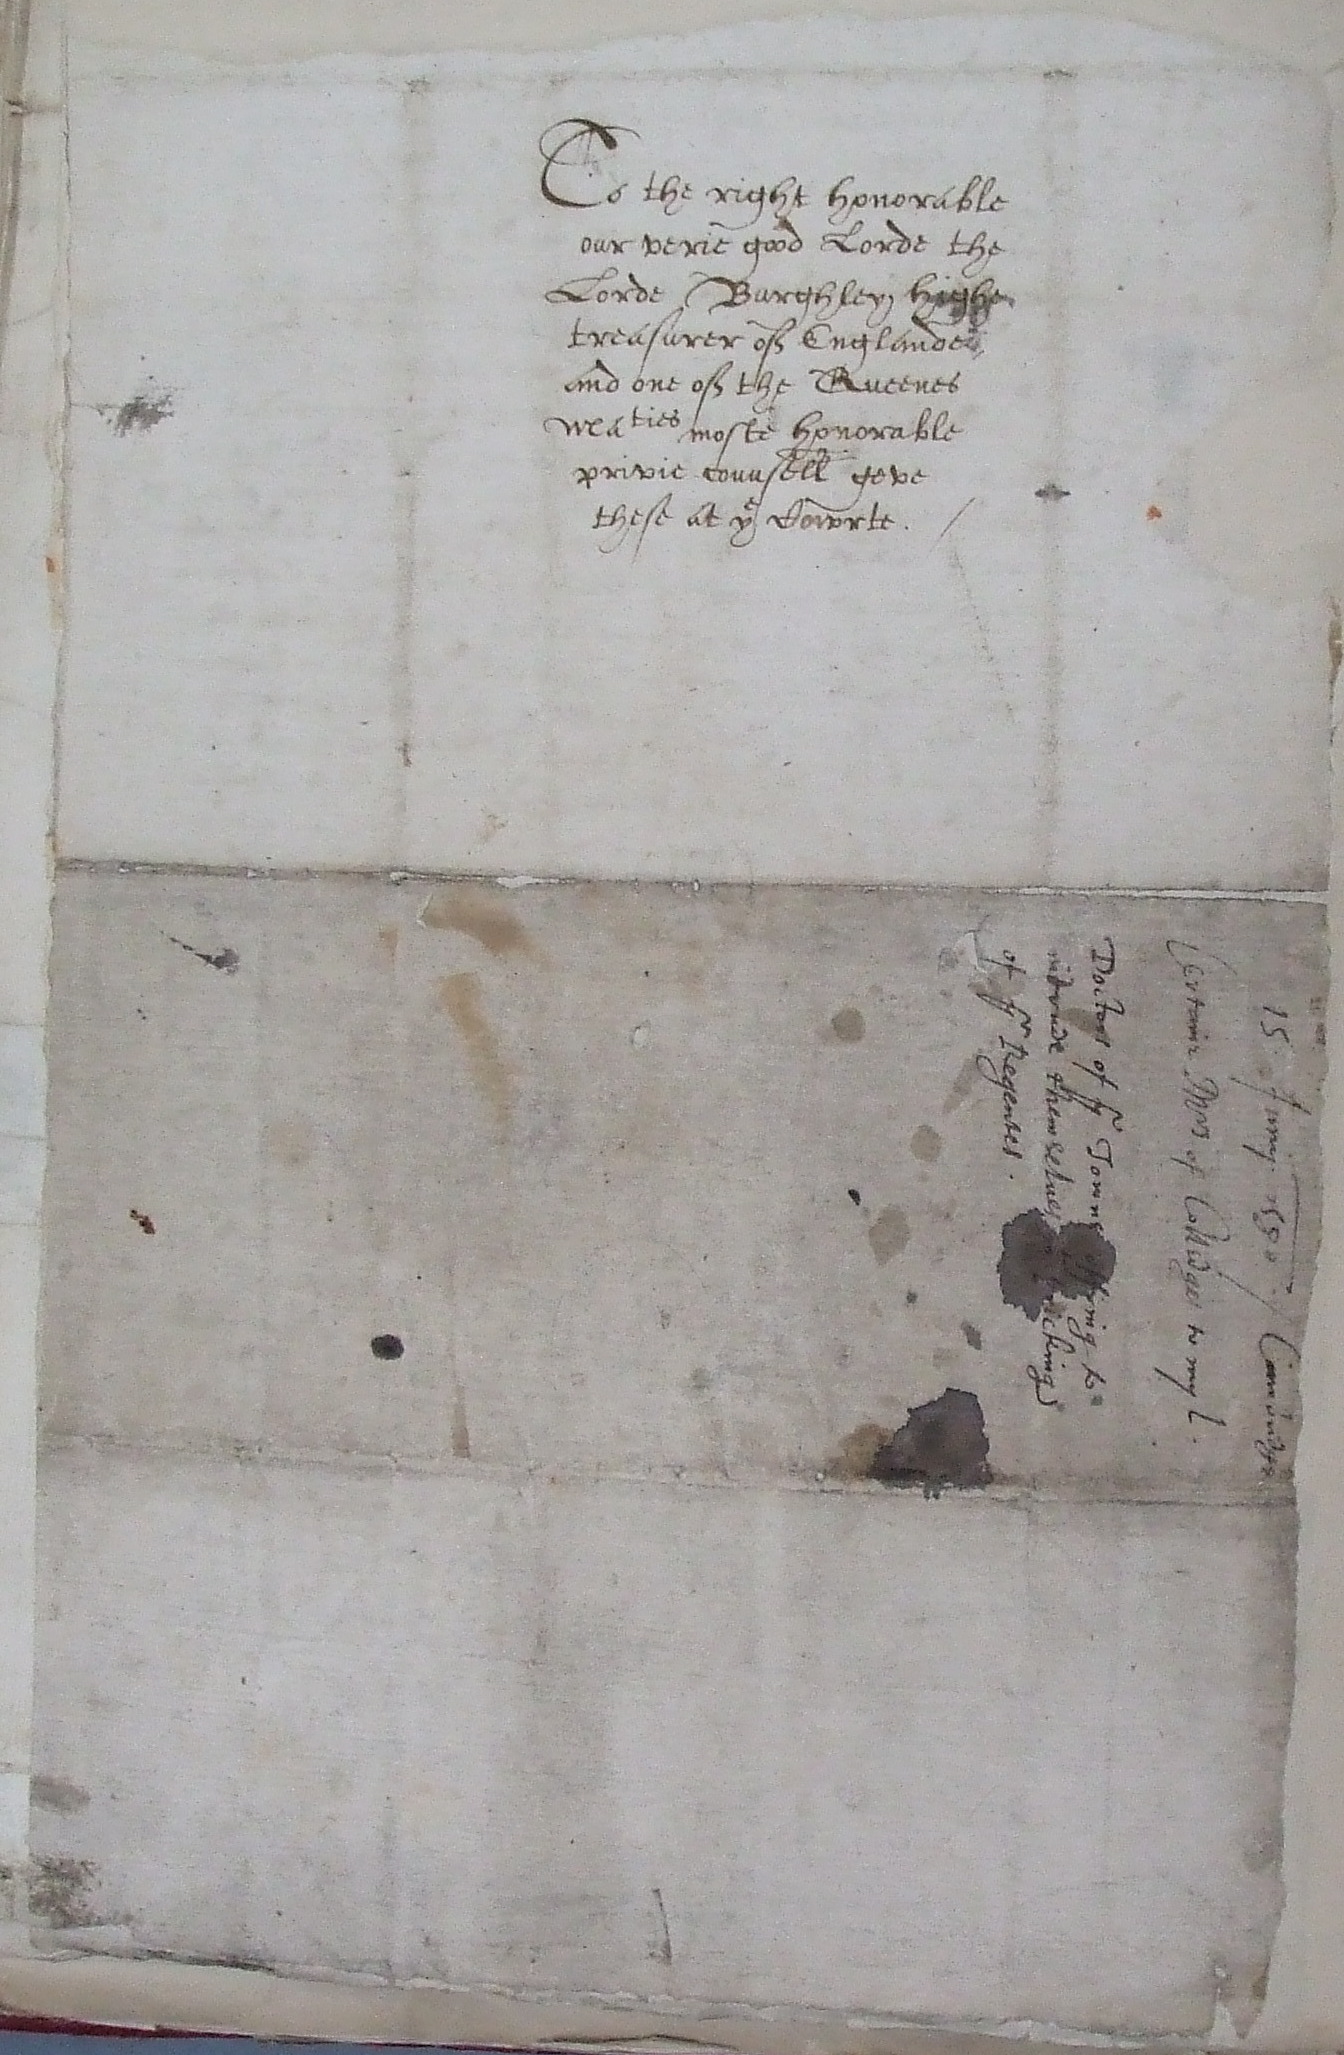 To the right honorable
our verie good Lorde the
Lorde Burghley highe
treasurer off Englande
and one off the Queenes
Maties moste honorable
privie counsell geve
these at ye Cowrte.
15 1580. Cambridge
Certain Mrs of Colledges to my L.
Doctors of ye Towne offring to
themselues
of ye Regentes.